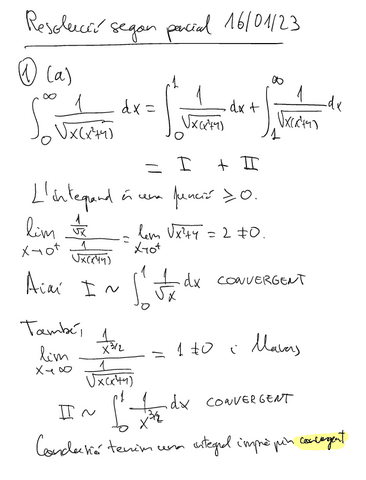 Resolució segon parcial 16/01/23
① (a)
∫₀^∞ 1/√(x(x²+4)) dx = ∫₀¹ 1/√(x(x²+4)) dx + ∫₁^∞ 1/√(x(x²+4)) dx
= I + II
L'integrand és una funció ≥ 0.
lim_{x→0⁺} (1/√x)/(1/√(x(x²+4))) = lim_{x→0⁺} √(x²+4) = 2 ≠ 0.
Així I ~ ∫₀¹ 1/√x dx CONVERGENT
També,
lim_{x→∞} (1/x^{3/2})/(1/√(x(x²+4))) = 1 ≠ 0 i llavors
II ~ ∫₀¹ 1/x^{3/2} dx CONVERGENT
Conclusió tenim una integral impròpia convergent